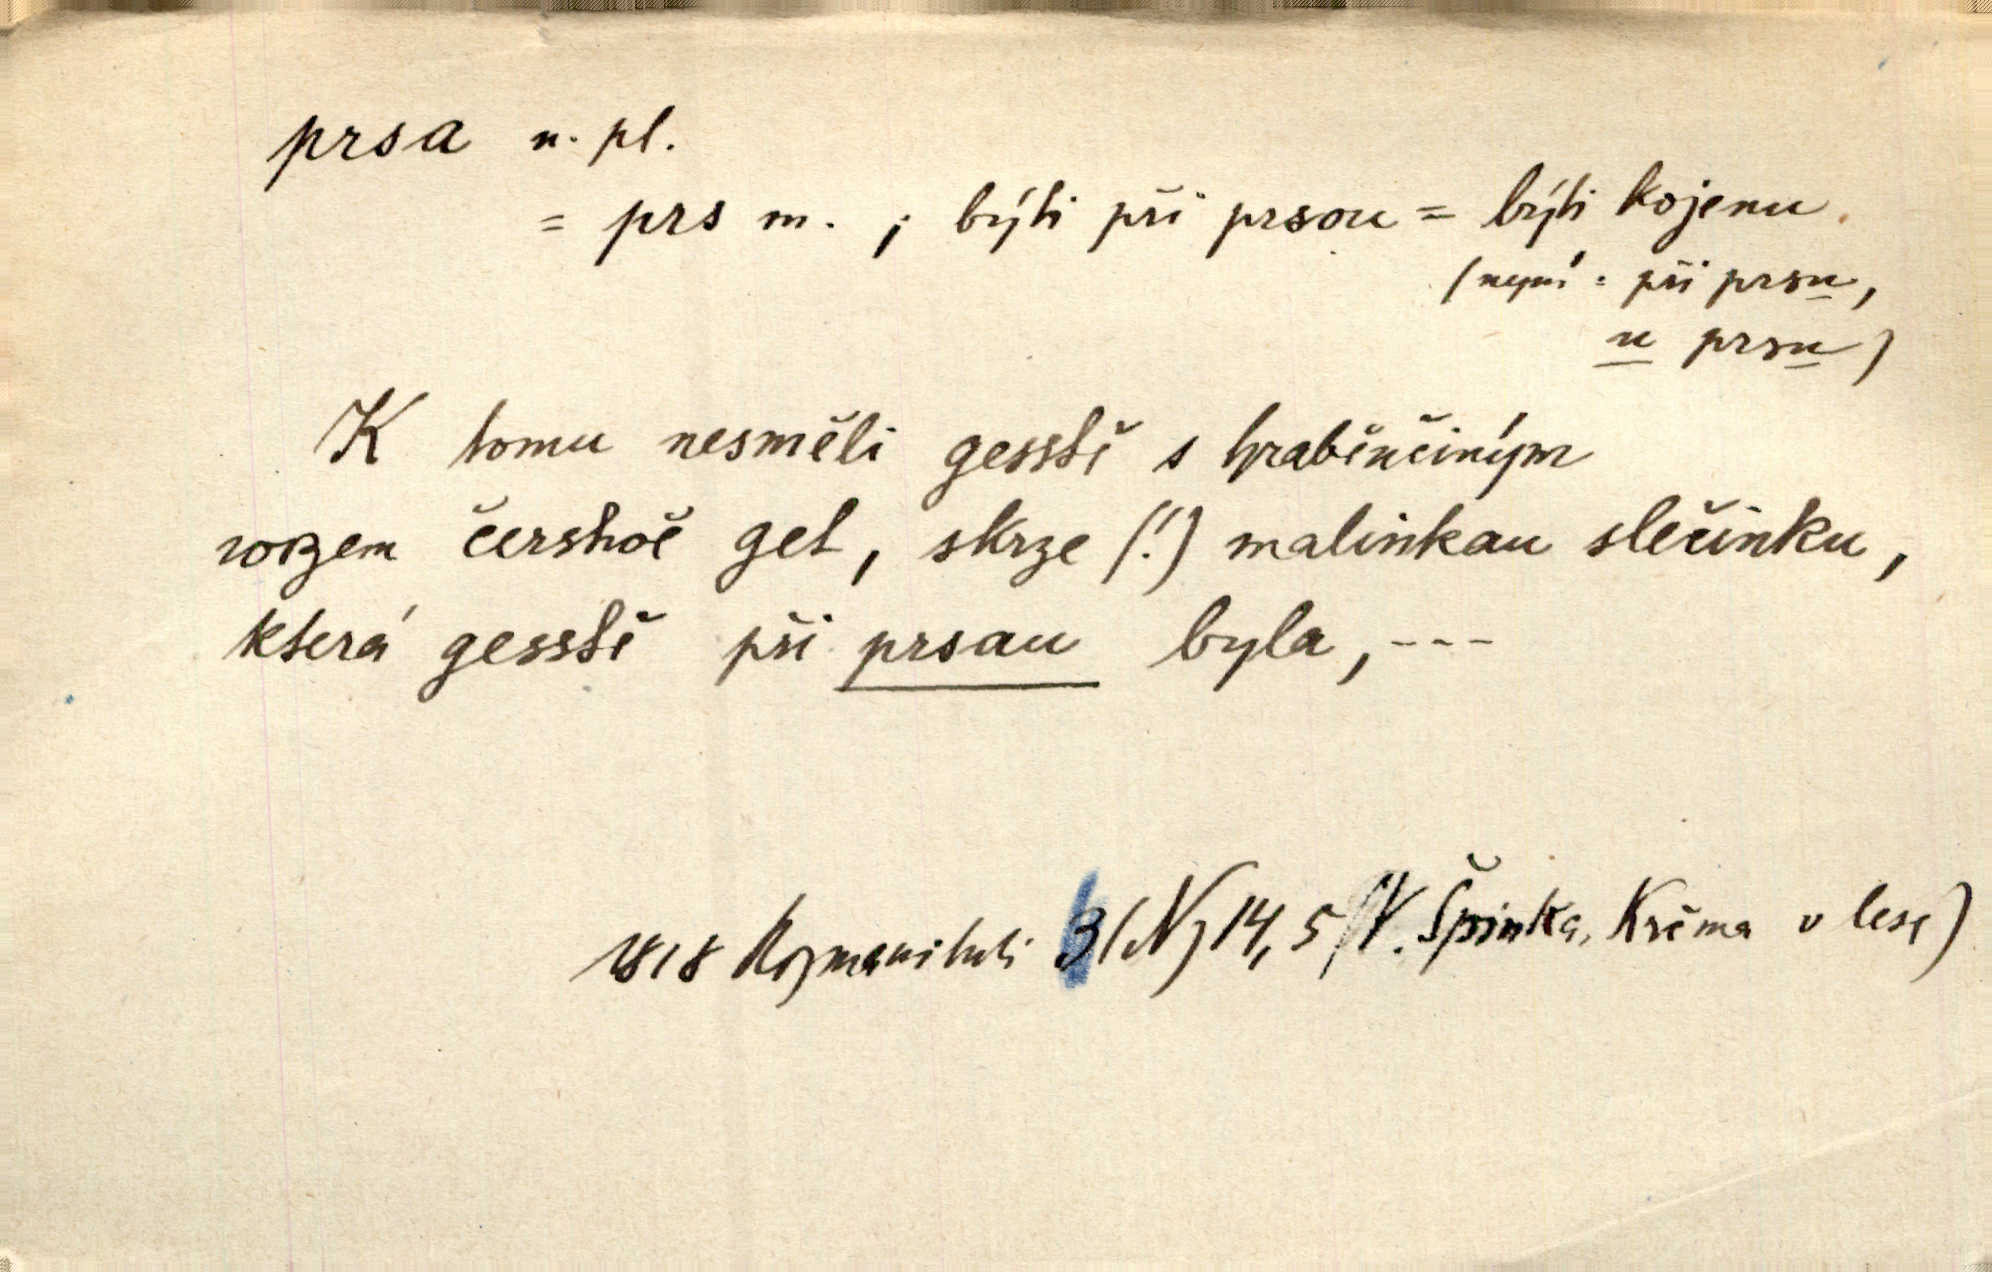 prsa n. pl.
= prs m. ; býti při prsou = býti kojenu.
(nyní: při prsu,
u prsu)
K tomu nesměli gesstě s hraběnčiným
wozem čerstwě get, skrze (!) malinkau slečinku,
která gesstě při prsau byla, ---
1818 Rozmanitosti 3 (Nj 14, 5 /V. Špinka, Krčma v lese)